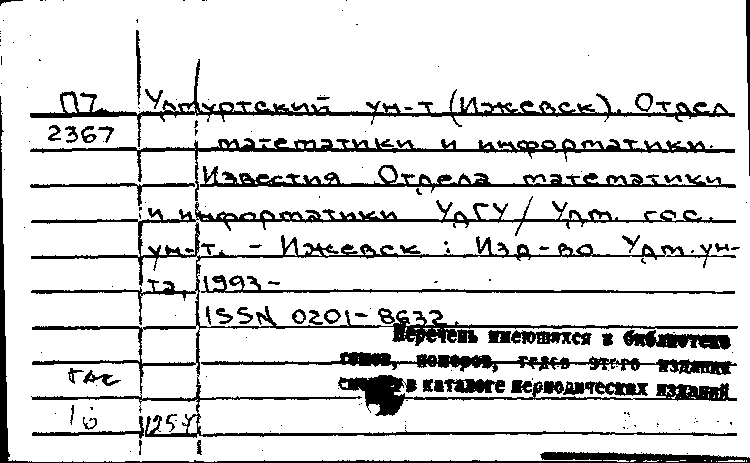 П7. Удмуртский ун-т (Ижевск). Отдел
2367 математики и информатики.
Известия Отдела математики
и информатики УдГУ / Удм. гос.
ун-т. - Ижевск : Изд-во Удм. ун-
та, 1993-
ISSN 0201-8632.
Перечень имеющихся в библиотеке
томов, номеров, годов этого издания
в каталоге периодических изданий